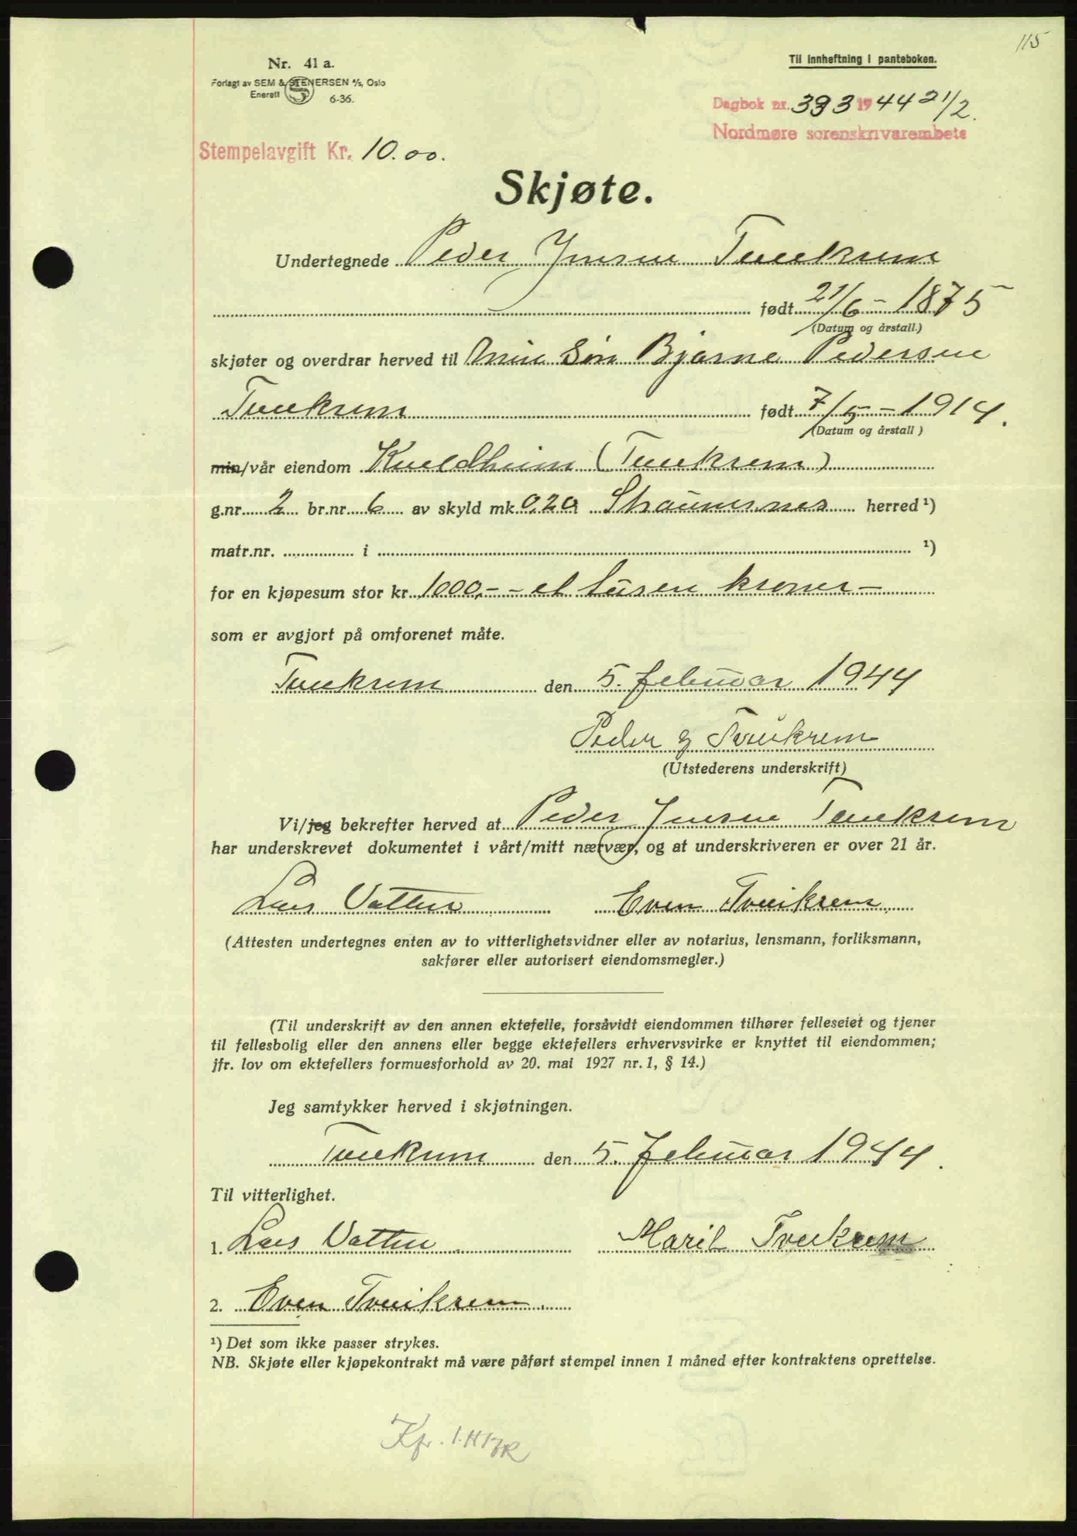 115
Nr. 41 a.
Forlagt av SEM & STENERSEN A/S, Oslo
Enerett 6-36.
Til innheftning i panteboken.
Dagbok nr. 393 1944 21/2.
Nordmøre sorenskriverembete
Stempelavgift Kr. 10.00.
Skjøte.
Undertegnede Peder Jensen Tveekrem
født 21/6 - 1875
(Datum og årstall.)
skjøter og overdrar herved til min Søn Bjarne Pedersen
Tveekrem født 7/5 - 1914.
(Datum og årstall)
min/vår eiendom Kveldheim (Tveekrem)
g.nr. 2 br.nr. 6 av skyld mk. 0,20 Straumsnes herred ¹)
matr.nr. i ¹)
for en kjøpesum stor kr. 1000,- - et tusen kroner -
som er avgjort på omforenet måte.
Tveekrem den 5. februar 1944
Peder J Tveikrem
(Utstederens underskrift)
Vi/jeg bekrefter herved at Peder Jensen Tveekrem
har underskrevet dokumentet i vårt/mitt nærvær, og at underskriveren er over 21 år.
Lars Vatten Even Tveikrem
(Attesten undertegnes enten av to vitterlighetsvidner eller av notarius, lensmann, forliksmann,
sakfører eller autorisert eiendomsmegler.)
(Til underskrift av den annen ektefelle, forsåvidt eiendommen tilhører felleseiet og tjener
til fellesbolig eller den annens eller begge ektefellers erhvervsvirke er knyttet til eiendommen;
jfr. lov om ektefellers formuesforhold av 20. mai 1927 nr. 1, § 14.)
Jeg samtykker herved i skjøtningen.
Tveekrem den 5. februar 1944.
Til vitterlighet.
1. Lars Vatten Marit Tveekrem
2. Even Tveikrem
¹) Det som ikke passer strykes.
NB. Skjøte eller kjøpekontrakt må være påført stempel innen 1 måned efter kontraktens oprettelse.
Kfr.